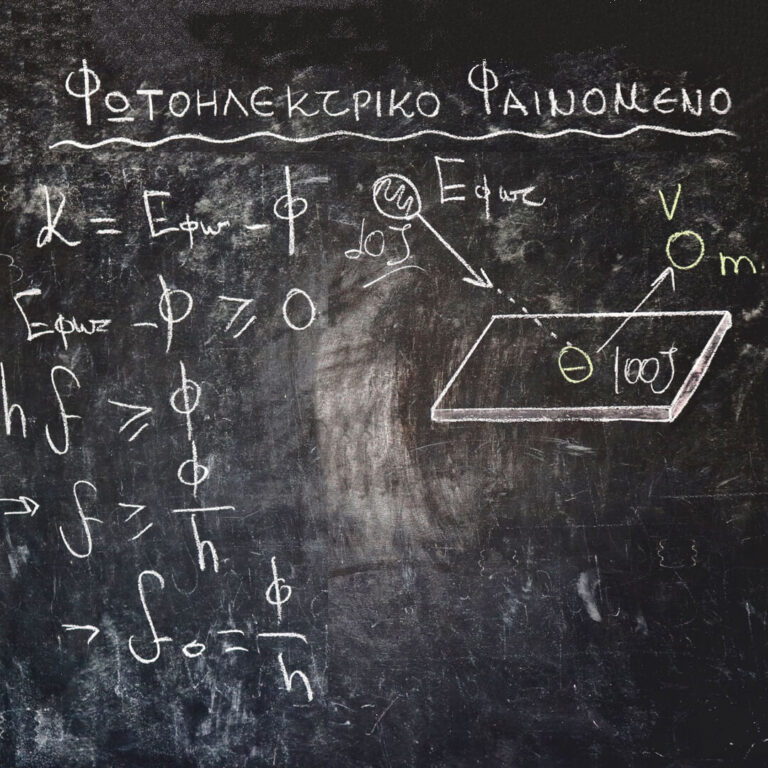 ΦΩΤΟΗΛΕΚΤΡΙΚΟ ΦΑΙΝΟΜΕΝΟ
K = Eφωτ - Φ
Eφωτ - Φ ≥ 0
hf ≥ Φ
→ f ≥ Φ/h
→ f₀ = Φ/h
Eφωτ
10J
V
m
−
100J